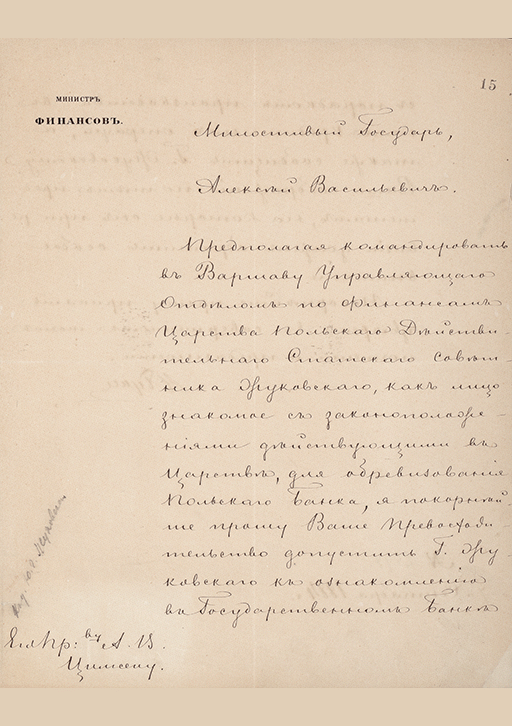 МИНИСТРЪ
ФИНАНСОВЪ.
15
Милостивый Государь,
Алексѣй Васильевичъ.
Предполагая командировать
въ Варшаву Управляющаго
Отдѣломъ по Финансамъ
Царства Польскаго Дѣйстви-
тельнаго Статскаго Совѣт-
ника Жуковскаго, какъ лицо
знакомое съ законоположе-
ніями дѣйствующими въ
Царствѣ, для обревизованія
Польскаго Банка, я покорнѣй-
ше прошу Ваше Превосходи-
тельство допустить Г. Жу-
ковскаго къ ознакомленію
въ Государственномъ Банкѣ
Его Пр: ву А. В.
Цимсену.